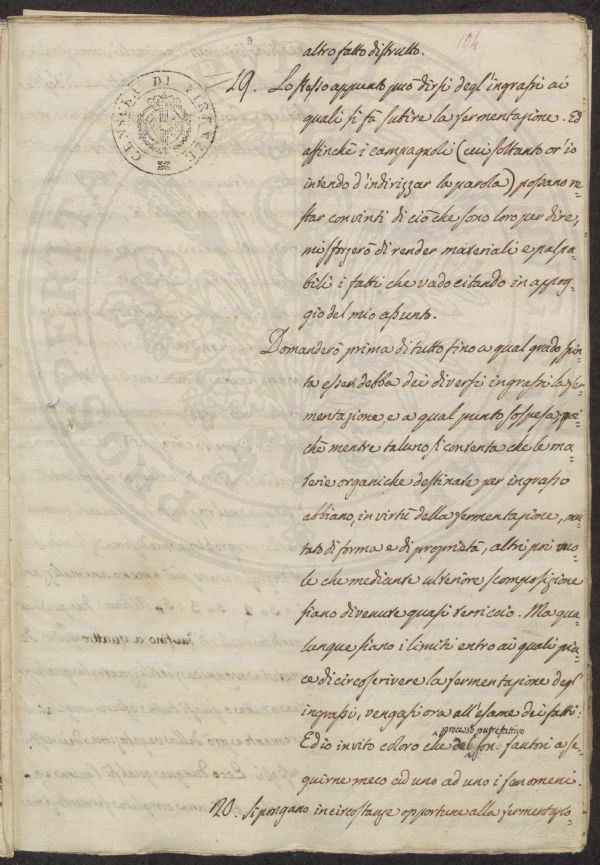 104
altro fatto distrutto.
CENSURA DI FIRENZE
19. Lo stesso appunto può dirsi degl'ingrassi ai
quali si fà subire la fermentazione. Ed
affinchè i campagnoli (cui soltanto or'io
intendo d'indirizzar la parola) possano re=
star convinti di ciò che sono loro per dire,
mi sforzerò di render materiali e palpa=
bili i fatti che vado citando in appog=
gio del mio assunto.
Domanderò prima di tutto fino a qual grado spin=
ta esser debba dei diversi ingrassi la fer=
mentazione, e a qual punto sospesa; poi=
chè mentre taluno si contenta che le ma=
terie organiche destinate per ingrasso
abbiano, in virtù della fermentazione, mu=
tato di forma e di proprietà, altri poi vuo=
le che mediante ulteriore scomposizione
siano divenute quasi terriccio. Ma qua=
lunque siano i limiti entro ai quali piac=
ce di circoscrivere la fermentazione degl'
ingrassi, vengasi ora all'esame dei fatti.
processo putrefattivo
Ed io invito coloro che del son fautori a se=
guirne meco ad uno ad uno i fenomeni.
20. Si pongano in circostanze opportune alla fermentazio=
fino a quattro